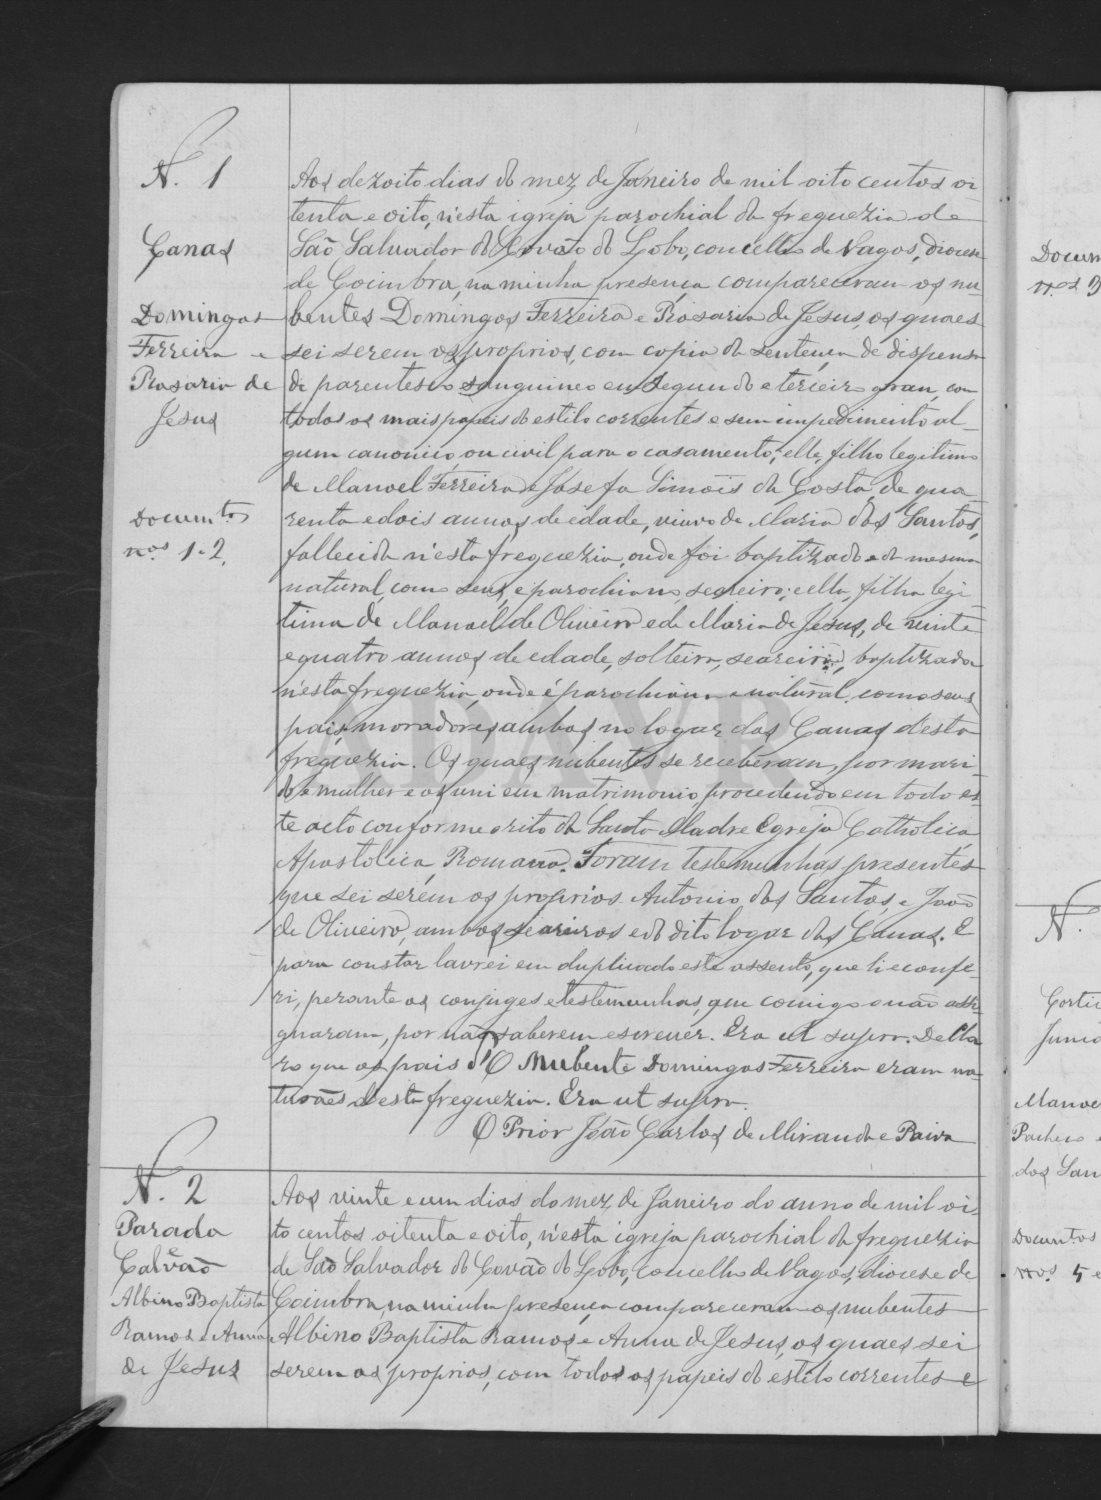 N. 1
Canas
Domingos
Ferreira e
Rosaria de
Jesus
Docum.tos
n.os 1-2.
Aos dezoito dias do mez de Janeiro de mil oito centos oi-
tenta e oito, n'esta igreja parochial da freguezia de
São Salvador do Covão do Lobo, concelho de Vagos, diocese
de Coimbra, na minha presença compareceram os nu-
bentes Domingos Ferreira e Rosaria de Jesus, os quaes
sei serem os proprios, com copia da sentença de dispensa
de parentesco sanguineo em segundo e terceiro grau, com
todos os mais papeis do estilo correntes e sem impedimento al-
gum canonico, ou civil para o casamento; elle, filho legitimo
de Manoel Ferreira e Josefa Simões da Costa, de qua-
renta e dois annos de edade, viuvo de Maria dos Santos,
fallecida n'esta freguezia, onde foi baptizado e da mesma
natural, como seus, é parochiano, seareiro; e ella, filha legi-
tima de Manoel de Oliveira e de Maria de Jesus, de vinte
e quatro annos de edade, solteira, seareira, baptizada
n'esta freguezia, onde é parochiana e natural, como seus
pais, moradores ambos no logar das Canas d'esta
freguezia. Os quaes nubentes se receberam por mari-
do e mulher e os uni em matrimonio, procedendo em todo es-
te acto conforme o rito da Santa Madre Egreja Catholica
Apostolica Romana. Foram testemunhas presentes
que sei serem os proprios Antonio dos Santos, e João
de Oliveira, ambos seareiros e do dito logar das Canas. E
para constar lavrei em duplicado este assento, que li e confe-
ri, perante os conjuges e testemunhas, que comigo não assi-
gnaram, por não saberem escrever. Era ut supra. Decla-
ro que os pais d'O Nubente Domingos Ferreira eram na-
turaes d'esta freguezia. Era ut supra.
O Prior João Carlos de Miranda e Paiva
N. 2
Parada
Calvão
Albino Baptista
Ramos e Anna
de Jesus
Aos vinte e um dias do mez de Janeiro do anno de mil oi-
to centos oitenta e oito, n'esta igreja parochial da freguezia
de São Salvador do Covão do Lobo, concelho de Vagos, diocese de
Coimbra, na minha presença compareceram os nubentes
Albino Baptista Ramos, e Anna de Jesus, os quaes sei
serem os proprios, com todos os papeis do estilo correntes e
Docum
n.os 3
N.
Junco
Manoe
Pacheco e
dos San
Docum.tos
n.os 5 e
ADAVR